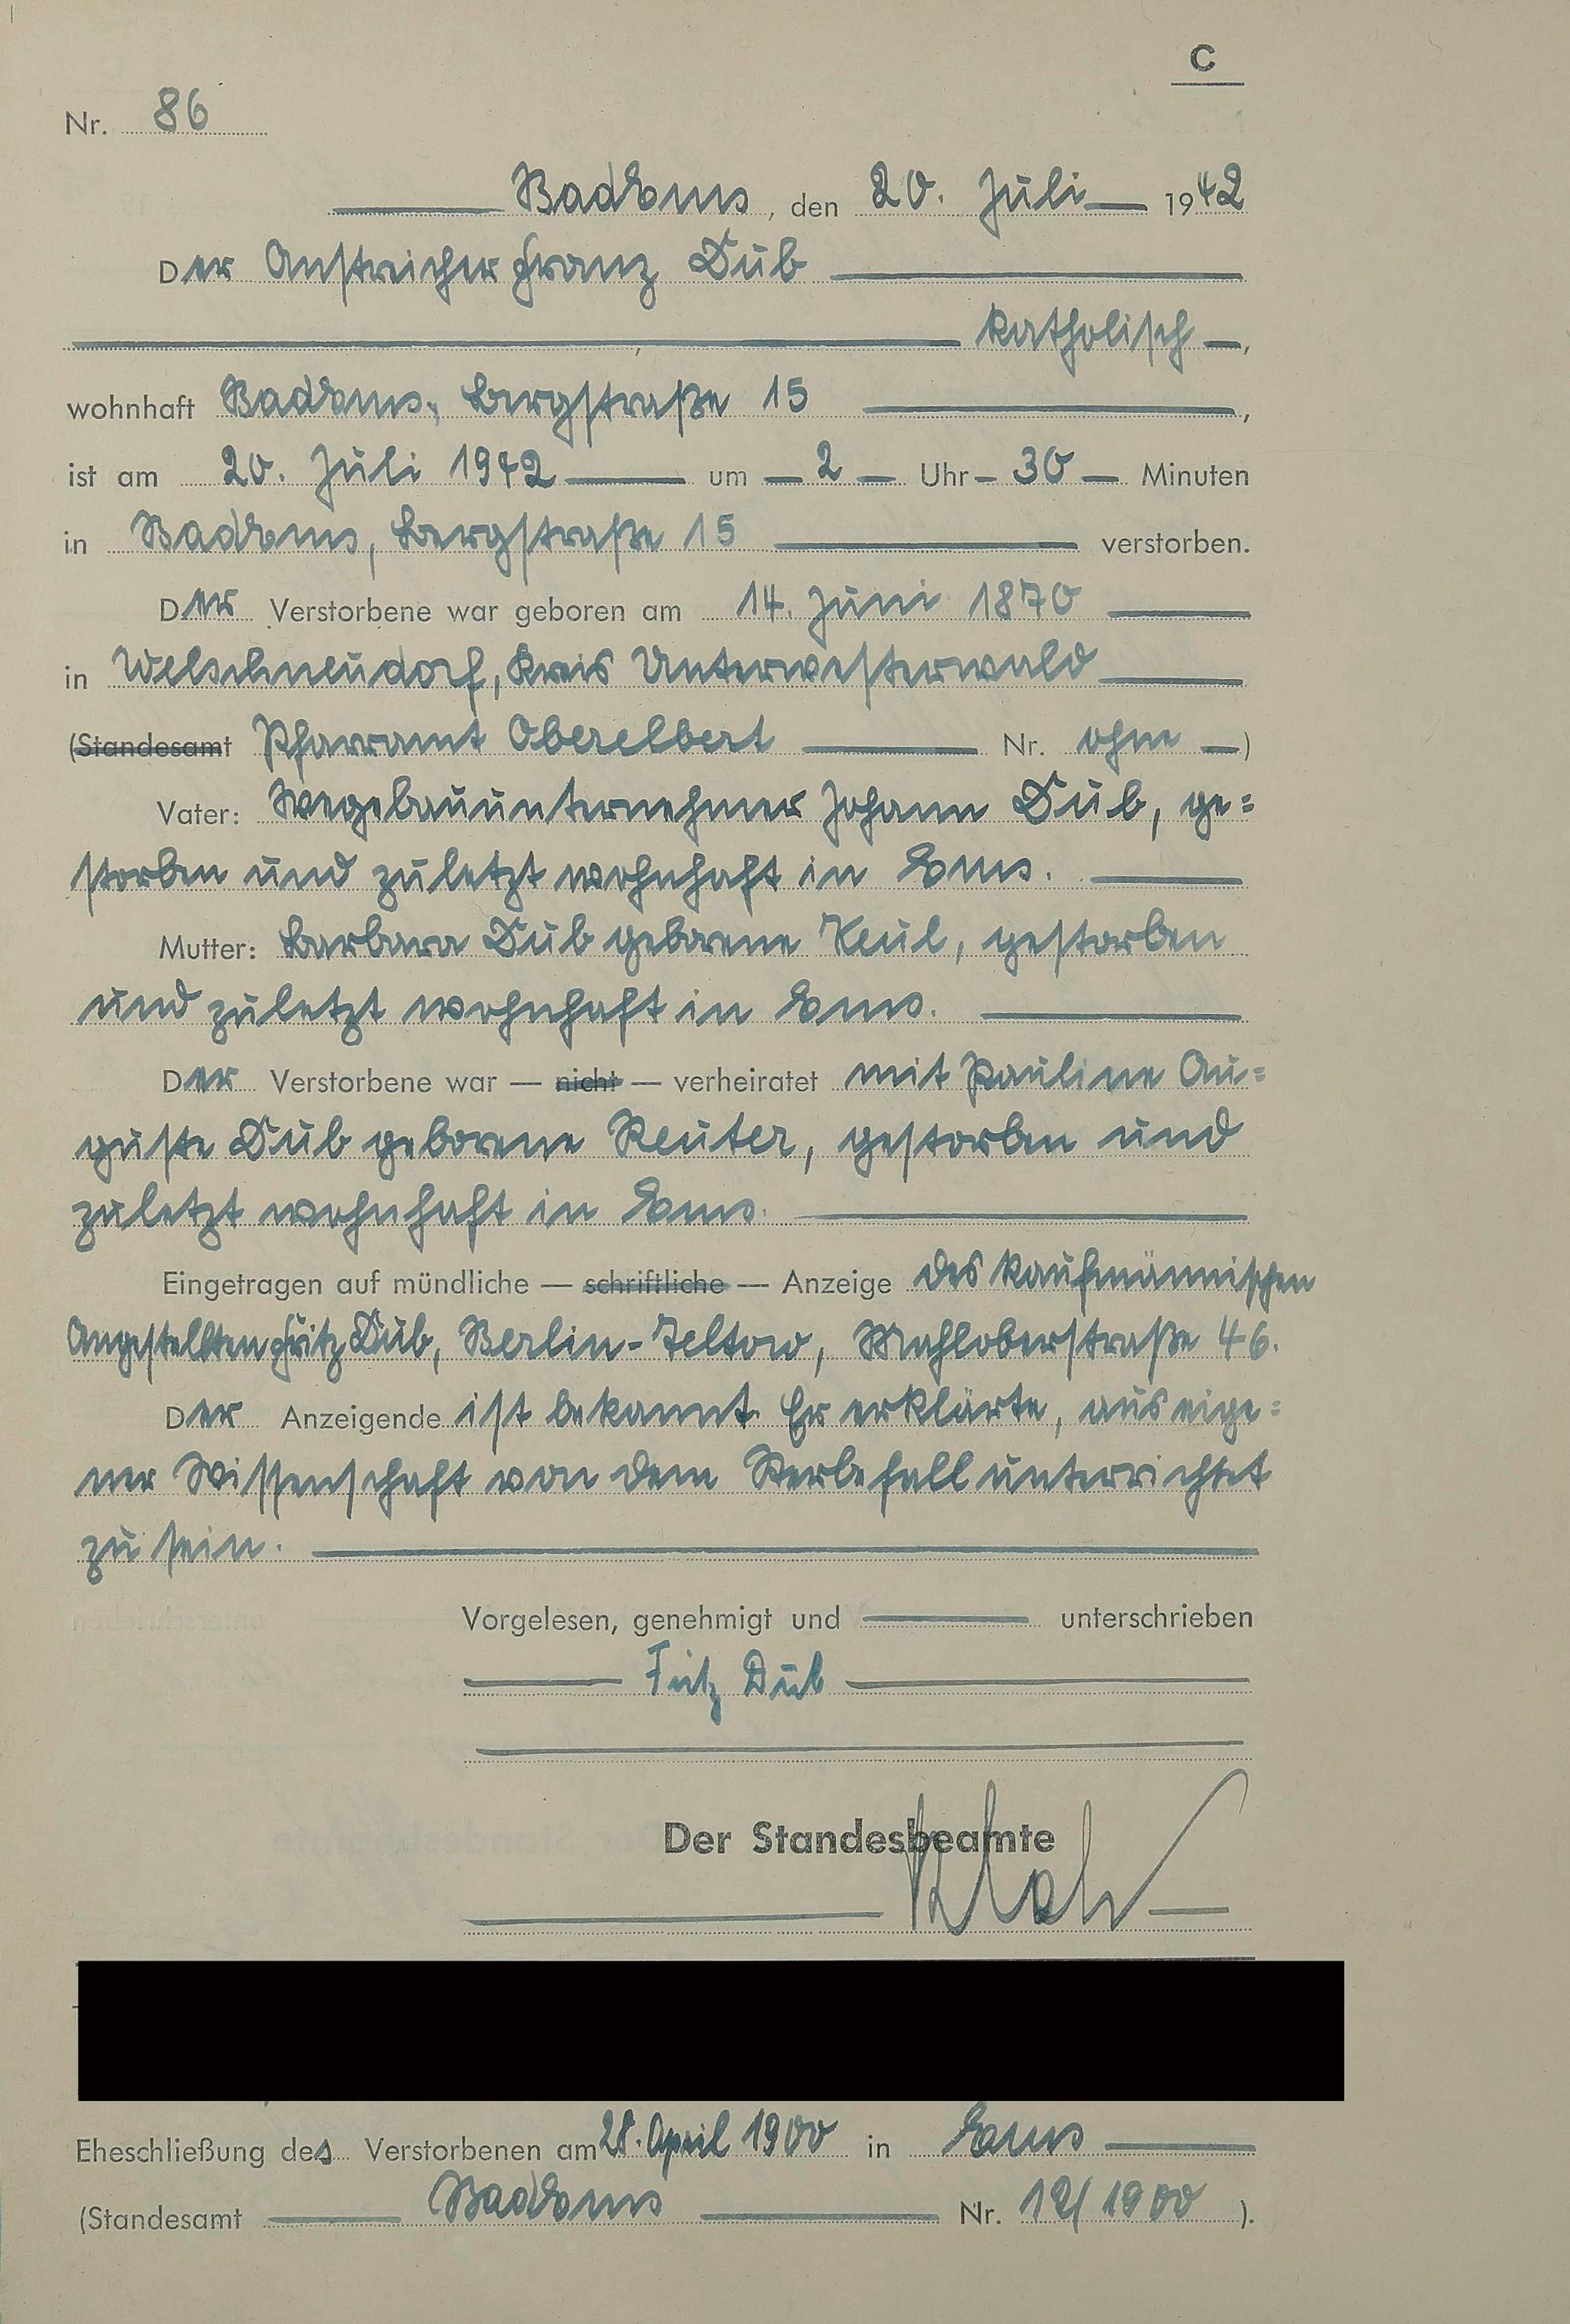 C
Nr. 86
Bad Ems, den 20. Juli 1942
Der Anstreicher Franz Dub
katholisch,
wohnhaft Bad Ems, Bergstraße 15,
ist am 20. Juli 1942 um 2 Uhr 30 Minuten
in Bad Ems, Bergstraße 15 verstorben.
Der Verstorbene war geboren am 14. Juni 1870
in Welschneudorf, Kreis Unterwesterwald
(Standesamt Pfarramt Oberelbert Nr. ohne)
Vater: Wegebauunternehmer Johann Dub, ge=
storben und zuletzt wohnhaft in Ems.
Mutter: Barbara Dub geborene Keul, gestorben
und zuletzt wohnhaft in Ems.
Der Verstorbene war — nicht — verheiratet mit Pauline Au=
guste Dub geborene Reuter, gestorben und
zuletzt wohnhaft in Ems.
Eingetragen auf mündliche — schriftliche — Anzeige des kaufmännischen
Angestellten Fritz Dub, Berlin-Teltow, Mahloberstraße 46.
Der Anzeigende ist bekannt. Er erklärte, aus eige=
ner Wissenschaft von dem Sterbefall unterrichtet
zu sein.
Vorgelesen, genehmigt und unterschrieben
Fritz Dub
Der Standesbeamte
Eheschließung des Verstorbenen am 28. April 1900 in Ems
(Standesamt Bad Ems Nr. 12/1900).